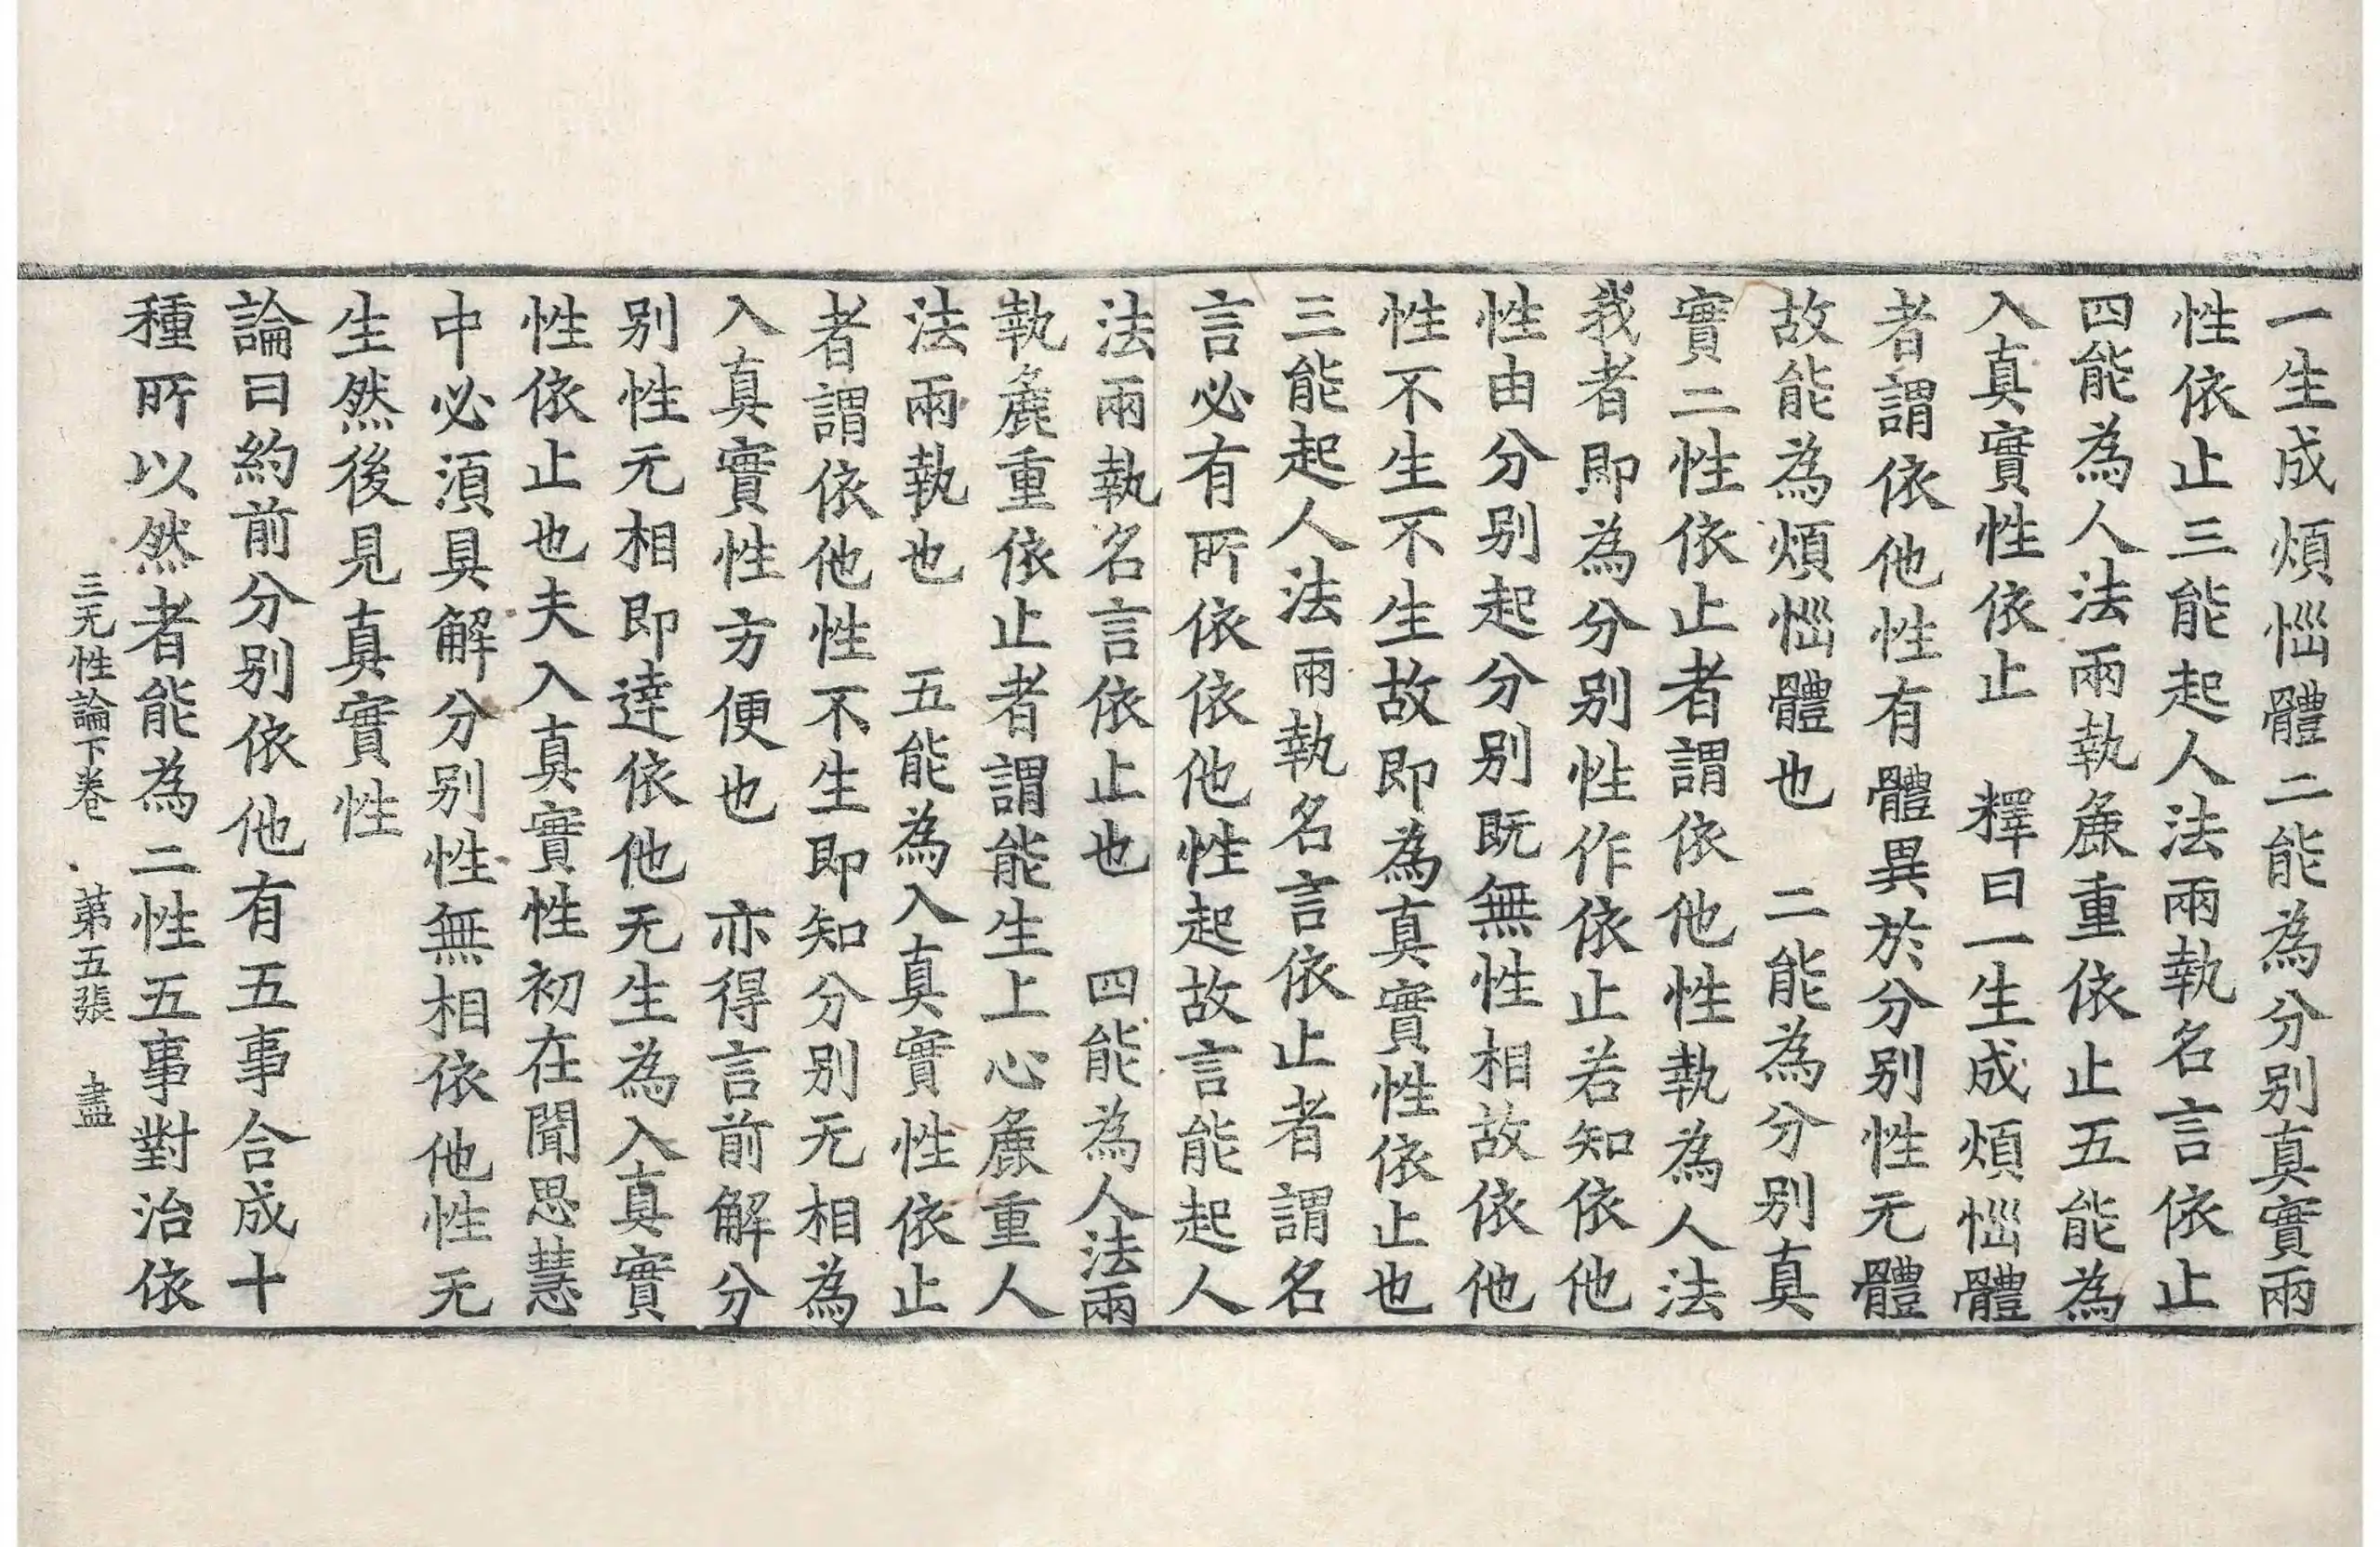 一生成煩惱體二能為分別真實兩
性依止三能起人法兩執名言依止
四能為人法兩執麁重依止五能為
入真實性依止　釋曰一生成煩惱體
者謂依他性有體異於分別性无體
故能為煩惱體也　二能為分別真
實二性依止者謂依他性執為人法
我者即為分別性作依止若知依他
性由分別起分別既無性相故依他
性不生不生故即為真實性依止也
三能起人法兩執名言依止者謂名
言必有所依依他性起故言能起人
法兩執名言依止也　四能為人法兩
執麁重依止者謂能生上心麁重人
法兩執也　五能為入真實性依止
者謂依他性不生即知分別无相為
入真實性方便也　亦得言前解分
別性无相即達依他无生為入真實
性依止也夫入真實性初在聞思慧
中必須具解分別性無相依他性无
生然後見真實性
論曰約前分別依他有五事合成十
種所以然者能為二性五事對治依
三无性論下卷　第五張　盡